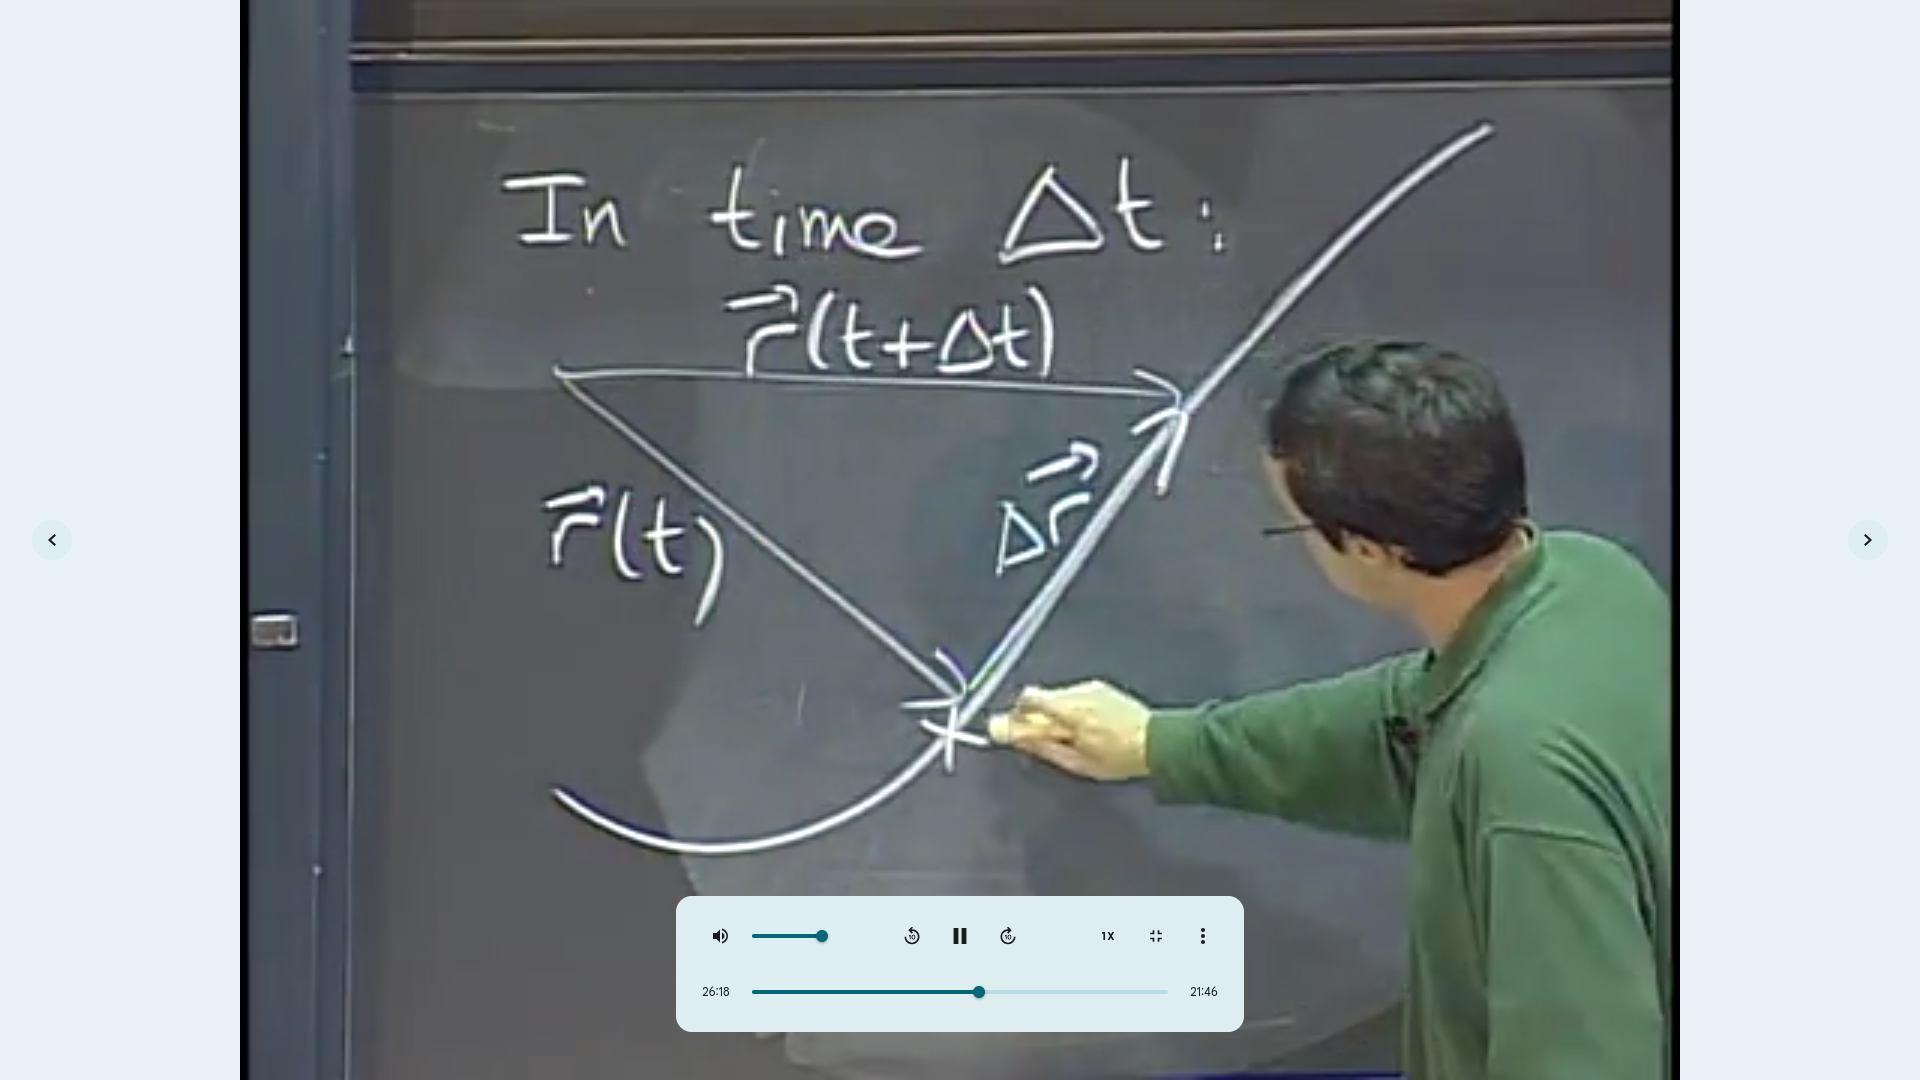 In time Δt:
r⃗(t+Δt)
Δr⃗
r⃗(t)
10
10
1X
26:18
21:46